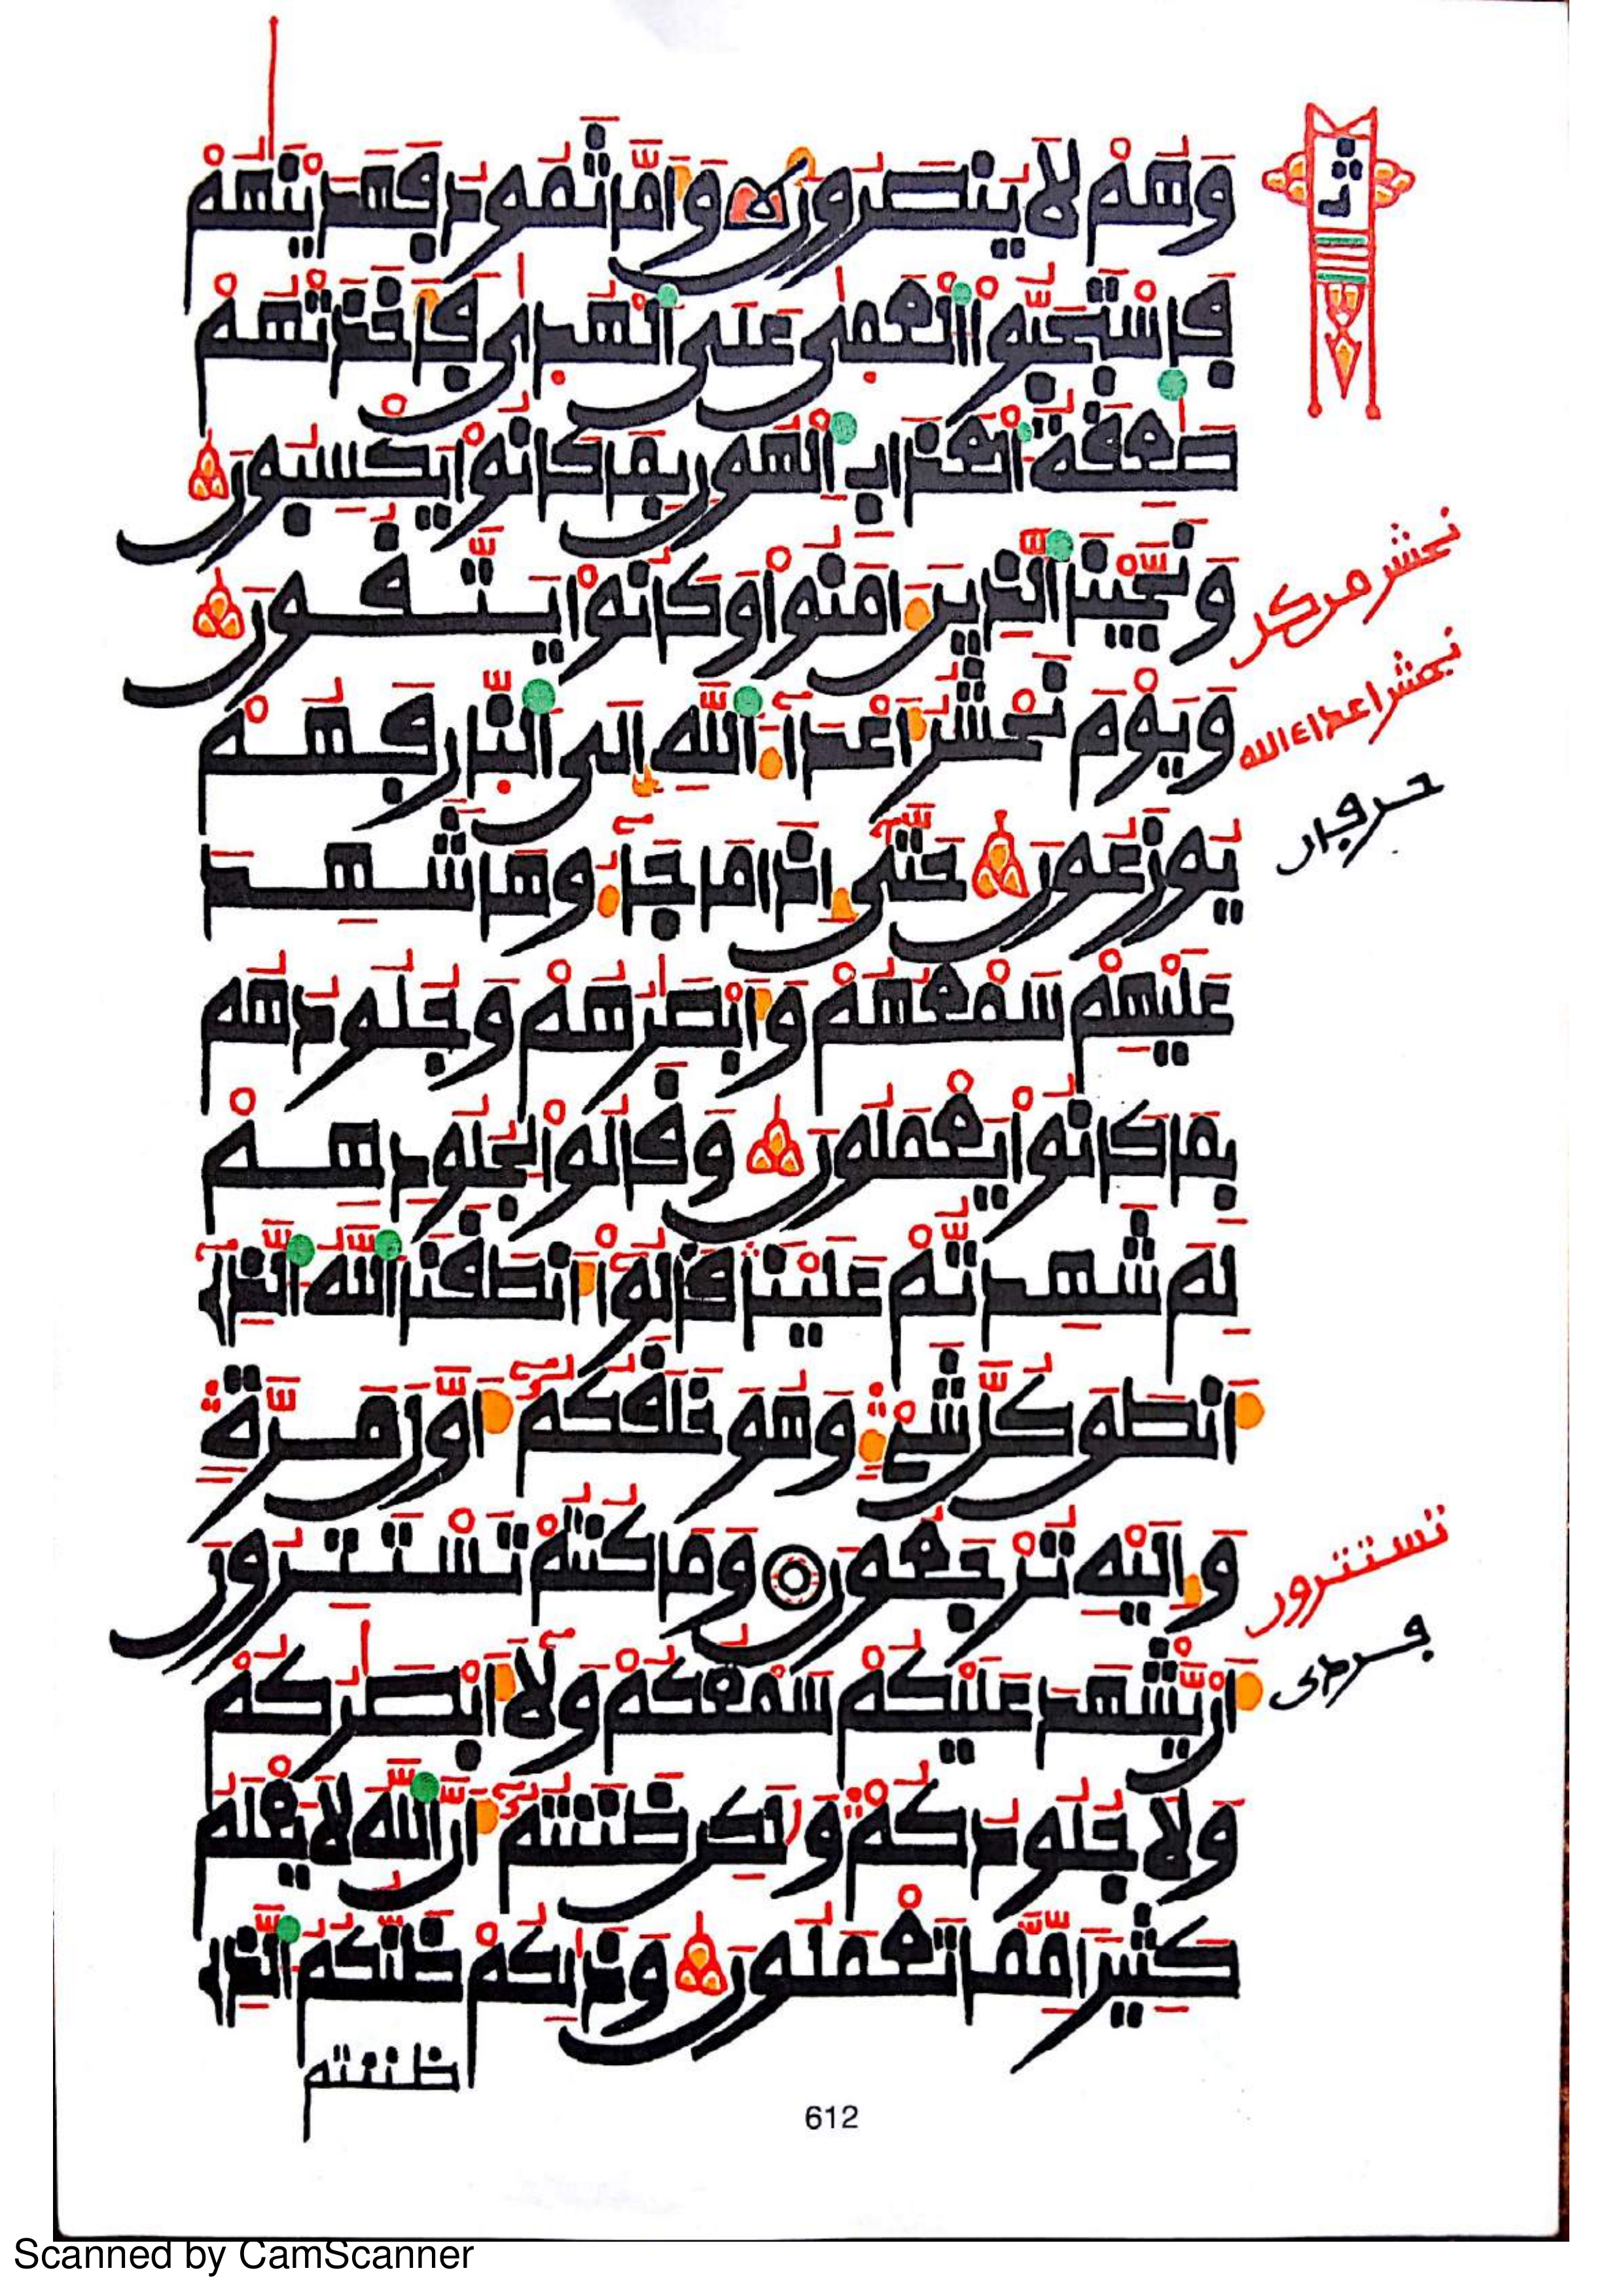 وَهُمْ لَا يُنصَرُونَ وَأَمَّا ثَمُودُ فَهَدَيْنَٰهُمْ
فَاسْتَحَبُّوا الْعَمَىٰ عَلَى الْهُدَىٰ فَأَخَذَتْهُمْ
صَٰعِقَةُ الْعَذَابِ الْهُونِ بِمَا كَانُوا يَكْسِبُونَ
وَنَجَّيْنَا الَّذِينَ ءَامَنُوا وَكَانُوا يَتَّقُونَ
وَيَوْمَ نَحْشُرُ أَعْدَآءَ اللَّهِ إِلَى النَّارِ فَهُمْ
نحشر اعداء الله
يُوزَعُونَ حَتَّىٰ إِذَا مَا جَآءُوهَا شَهِدَ
عَلَيْهِمْ سَمْعُهُمْ وَأَبْصَٰرُهُمْ وَجُلُودُهُم
بِمَا كَانُوا يَعْمَلُونَ وَقَالُوا لِجُلُودِهِمْ
لِمَ شَهِدتُّمْ عَلَيْنَا قَالُوا أَنطَقَنَا اللَّهُ الَّذِي
أَنطَقَ كُلَّ شَيْءٍ وَهُوَ خَلَقَكُمْ أَوَّلَ مَرَّةٍ
وَإِلَيْهِ تُرْجَعُونَ وَمَا كُنتُمْ تَسْتَتِرُونَ
تستترون
أَنْ يَّشْهَدَ عَلَيْكُمْ سَمْعُكُمْ وَلَا أَبْصَٰرُكُمْ
وَلَا جُلُودُكُمْ وَلَٰكِن ظَنَنتُمْ أَنَّ اللَّهَ لَا يَعْلَمُ
كَثِيرًا مِّمَّا تَعْمَلُونَ وَذَٰلِكُمْ ظَنُّكُمُ الَّذِي
ظننتم
612
Scanned by CamScanner